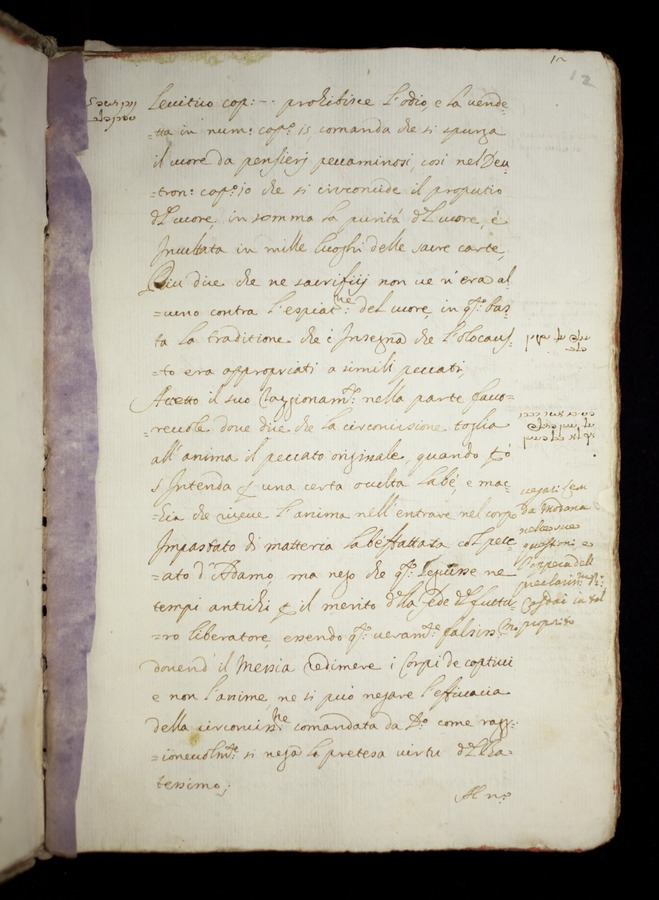 12
Levitico cap: prohibisce l'odio, e la vende-
-tta in num: cap.º 15 comanda che si spurga
il cuore da pensierj peccaminosi, così nel Deu
-tron: cap.º 10 che si circoncide il proputio
d'l cuore, in somma la purità d'l cuore, è
Inculcata in mille luoghi delle sacre carte,
Più dice che ne sacrifitij non ve n'era al
-cuno contra l'espiat.ne del cuore, in q.º bas
ta la traditione che c'Insegna che l'olocaus
-to era appropriati a simili peccati,
Accetto il suo Raggionam.to nella parte favo-
-revole dove dice che la circoncisione toglia
all'anima il peccato originale, quando
s'Intenda una certa occulta labe, e mac-
-chia che riceve l'anima nell'entrare nel corpo
Impastato di matteria labefattata col pecc
-ato d'Adamo, ma nego che q.º seguisse ne
tempi antichi il merito d'lla fede d'l futu
-ro liberatore, essendo q.º veram.te falsiss.mo
dovend' il Messia redimere i Corpi de captivi
e non l'anime, ne si può negare l'efficacia
della circoncis.ne comandata da D.º come ragg:
-ionevolm.te si nega la pretesa virtu d'l Ba-
tessimo;
Al n.º
vegasi
da Modana
nelle sue
questioni, e
l'opera dell
in tal
proposito